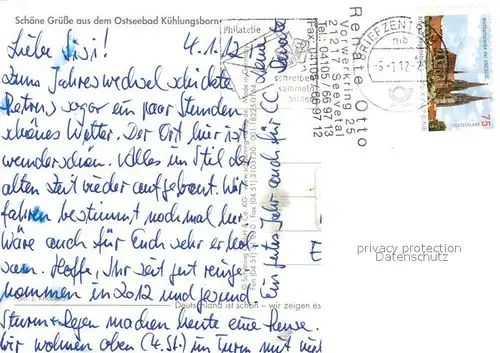 Schöne Grüße aus dem Ostseebad Kühlungsborn
Liebe Sisi! 4.1.12
zum Jahreswechsel schickte
Petrus sogar ein paar Stunden
schönes Wetter. Der Ort hier ist
wunderschön. Alles im Stil der
alten Zeit wieder aufgebaut. Wir
fahren bestimmt nochmal her
Wäre auch für Euch sehr erhol-
sam. Hoffe, Ihr seit gut reinge-
kommen in 2012 und gesund.
Sturm + Regen machen heute eine Pause.
Wir wohnen oben (4. St.) im Turm mit
Ein gutes Jahr auch für C.
Deine
Renate
Philatelie
schreiben
sammeln
Renate Otto
Vorwerkring 25
21217 Seevetal
Tel. 04105 / 66 97 13
Fax 04105 / 66 97 12
BRIEFZENT
-5.1.12
75
Deutschland ist schön – wir zeigen es
privacy protection
Datenschutz